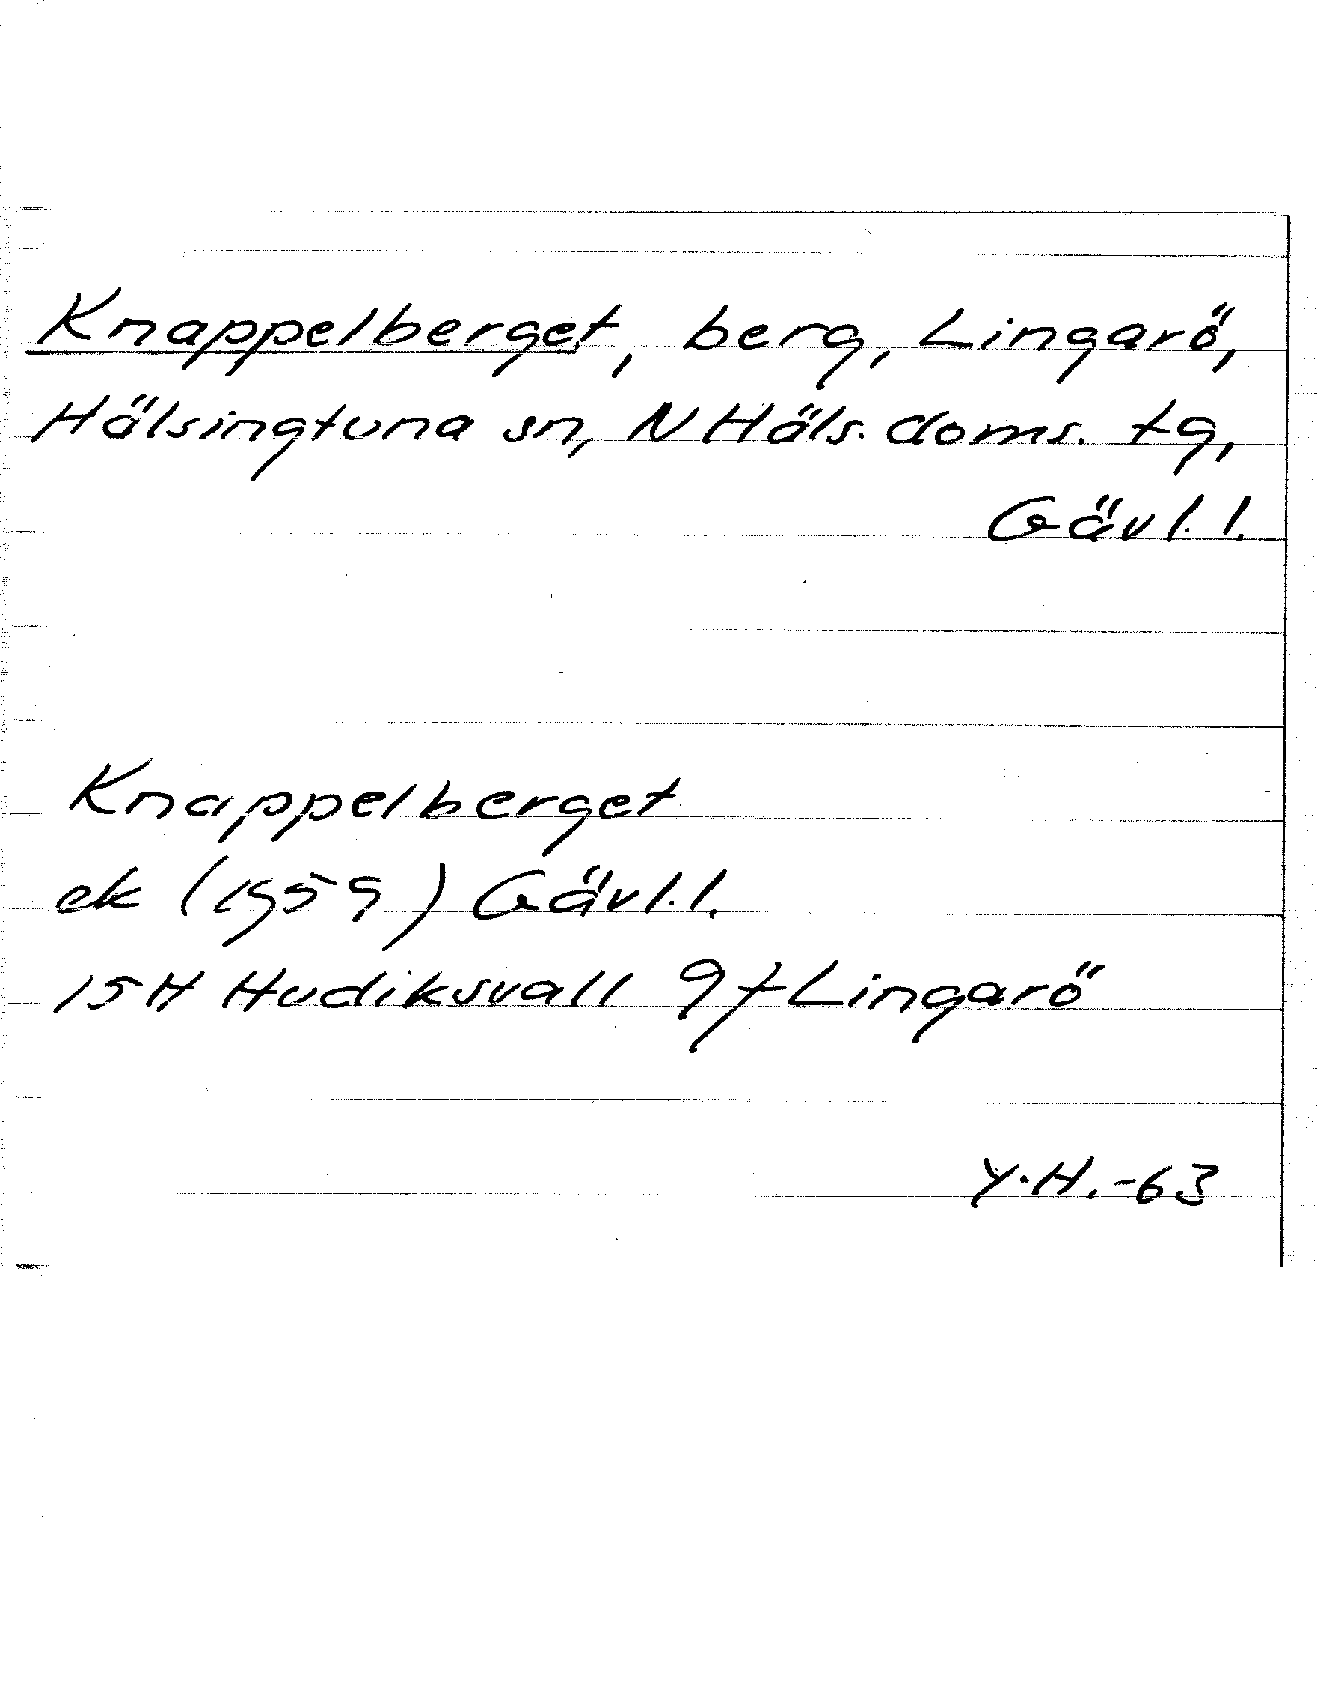 Knappelberget, berg, Lingarö,
Hälsingtuna sn, N Häls. doms. tg,
Gävl. l.
Knappelberget
ek (1959) Gävl. l.
15H Hudiksvall 9f Lingarö
Y.H. -63